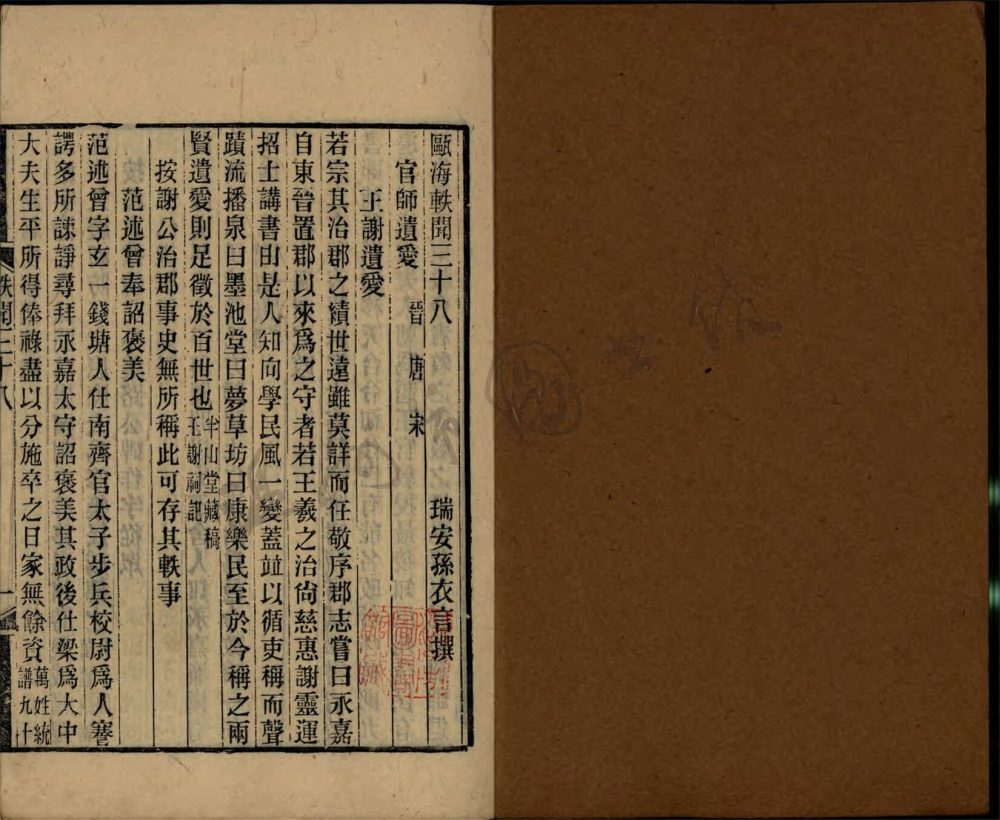 甌海軼聞三十八
瑞安孫衣言撰
官師遺愛　晉　唐　宋
王謝遺愛
若宗其治郡之績世遠雖莫詳而任敬序郡志嘗曰永嘉
自東晉置郡以來爲之守者若王羲之治尙慈惠謝靈運
招士講書由是人知向學民風一變蓋竝以循吏稱而聲
蹟流播泉曰墨池堂曰夢草坊曰康樂民至於今稱之兩
賢遺愛則足徵於百世也半山堂藏稿王謝祠記
按謝公治郡事史無所稱此可存其軼事
范述曾奉詔褒美
范述曾字玄一錢塘人仕南齊官太子步兵校尉爲人謇
諤多所諫諍尋拜永嘉太守詔褒美其政後仕梁爲大中
大夫生平所得俸祿盡以分施卒之日家無餘資萬姓統譜九十
軼聞三十八
一